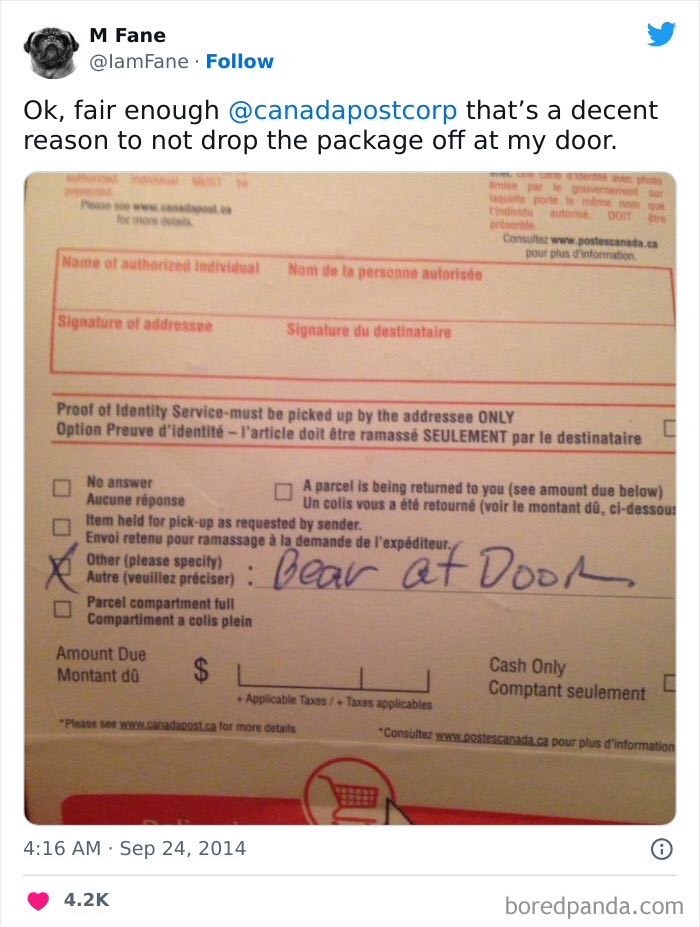 M Fane
@IamFane · Follow
Ok, fair enough @canadapostcorp that's a decent
reason to not drop the package off at my door.
authorized individual MUST be
presented.
Please see www.canadapost.ca
for more details.
une carte d'identité avec photo
émise par le gouvernement sur
laquelle porte le même nom que
l'individu autorisé, DOIT être
présentée.
Consultez www.postescanada.ca
pour plus d'information.
Name of authorized individual Nom de la personne autorisée
Signature of addressee Signature du destinataire
Proof of Identity Service-must be picked up by the addressee ONLY
Option Preuve d'identité – l'article doit être ramassé SEULEMENT par le destinataire
No answer
Aucune réponse
A parcel is being returned to you (see amount due below)
Un colis vous a été retourné (voir le montant dû, ci-dessous
Item held for pick-up as requested by sender.
Envoi retenu pour ramassage à la demande de l'expéditeur.
Other (please specify)
Autre (veuillez préciser) : Bear at Door
Parcel compartment full
Compartiment a colis plein
Amount Due
Montant dû
$
+ Applicable Taxes / + Taxes applicables
Cash Only
Comptant seulement
*Please see www.canadapost.ca for more details
*Consultez www.postescanada.ca pour plus d'information
4:16 AM · Sep 24, 2014
4.2K
boredpanda.com